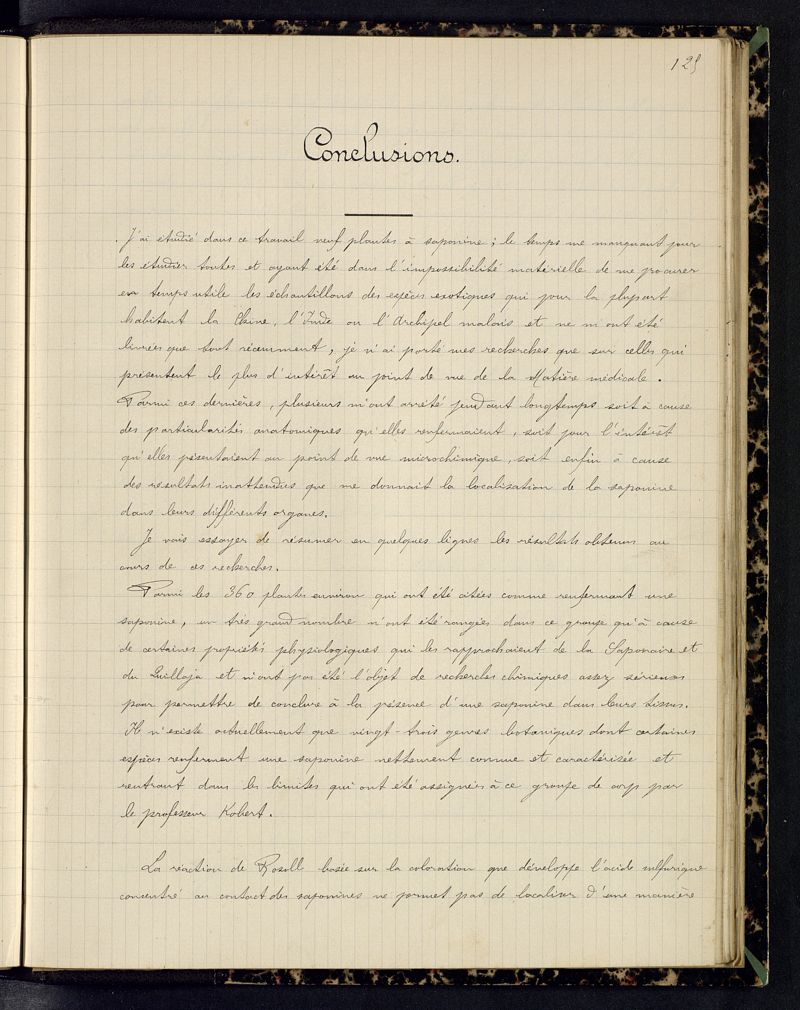 125
Conclusions.
J'ai étudié dans ce travail neuf plantes à saponine ; le temps me manquant pour
les étudier toutes et ayant été dans l'impossibilité matérielle de me procurer
en temps utile les échantillons des espèces exotiques qui pour la plupart
habitent la Chine, l'Inde ou l'Archipel malais et ne m'ont été
livrées que tout récemment, je n'ai porté mes recherches que sur celles qui
présentent le plus d'intérêt au point de vue de la Matière médicale.
Parmi ces dernières, plusieurs m'ont arrêté pendant longtemps soit à cause
des particularités anatomiques qu'elles renfermaient, soit pour l'intérêt
qu'elles présentaient au point de vue microchimique, soit enfin à cause
des résultats inattendus que me donnait la localisation de la saponine
dans leurs différents organes.
Je vais essayer de résumer en quelques lignes les résultats obtenus au
cours de ces recherches.
Parmi les 360 plantes environ qui ont été citées comme renfermant une
saponine, un très grand nombre n'ont été rangées dans ce groupe qu'à cause
de certaines propriétés physiologiques qui les rapprochaient de la Saponaire et
du Quillaja et n'ont pas été l'objet de recherches chimiques assez sérieuses
pour permettre de conclure à la présence d'une saponine dans leurs tissus.
Il n'existe actuellement que vingt-trois genres botaniques dont certaines
espèces renferment une saponine nettement connue et caractérisée et
rentrant dans les limites qui ont été assignées à ce groupe de corps par
le professeur Kobert.
La réaction de Rosoll basée sur la coloration que développe l'acide sulfurique
concentré au contact des saponines ne permet pas de localiser d'une manière